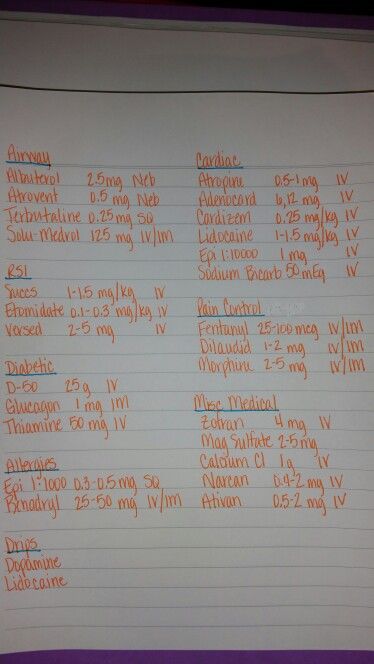 Airway
Albuterol 2.5mg Neb
Atrovent 0.5 mg Neb
Terbutaline 0.25 mg SQ
Solu-Medrol 125 mg IV/IM
RSI
Succs 1-1.5 mg/kg IV
Etomidate 0.1-0.3 mg/kg IV
Versed 2-5 mg IV
Diabetic
D-50 25g IV
Glucagon 1 mg IM
Thiamine 50 mg IV
Allergies
Epi 1:1000 0.3-0.5mg SQ
Benadryl 25-50 mg IV/IM
Drips
Dopamine
Lidocaine
Cardiac
Atropine 0.5-1 mg IV
Adenocard 6,12 mg IV
Cardizem 0.25 mg/kg IV
Lidocaine 1-1.5 mg/kg IV
Epi 1:10000 1 mg IV
Sodium Bicarb 50 mEq IV
Pain Control
Fentanyl 25-100 mcg IV/IM
Dilaudid 1-2 mg IV/IM
Morphine 2-5 mg IV/IM
Misc Medical
Zofran 4 mg IV
Mag Sulfate 2-5 mg
Calcium Cl 1g IV
Narcan 0.4-2 mg IV
Ativan 0.5-2 mg IV